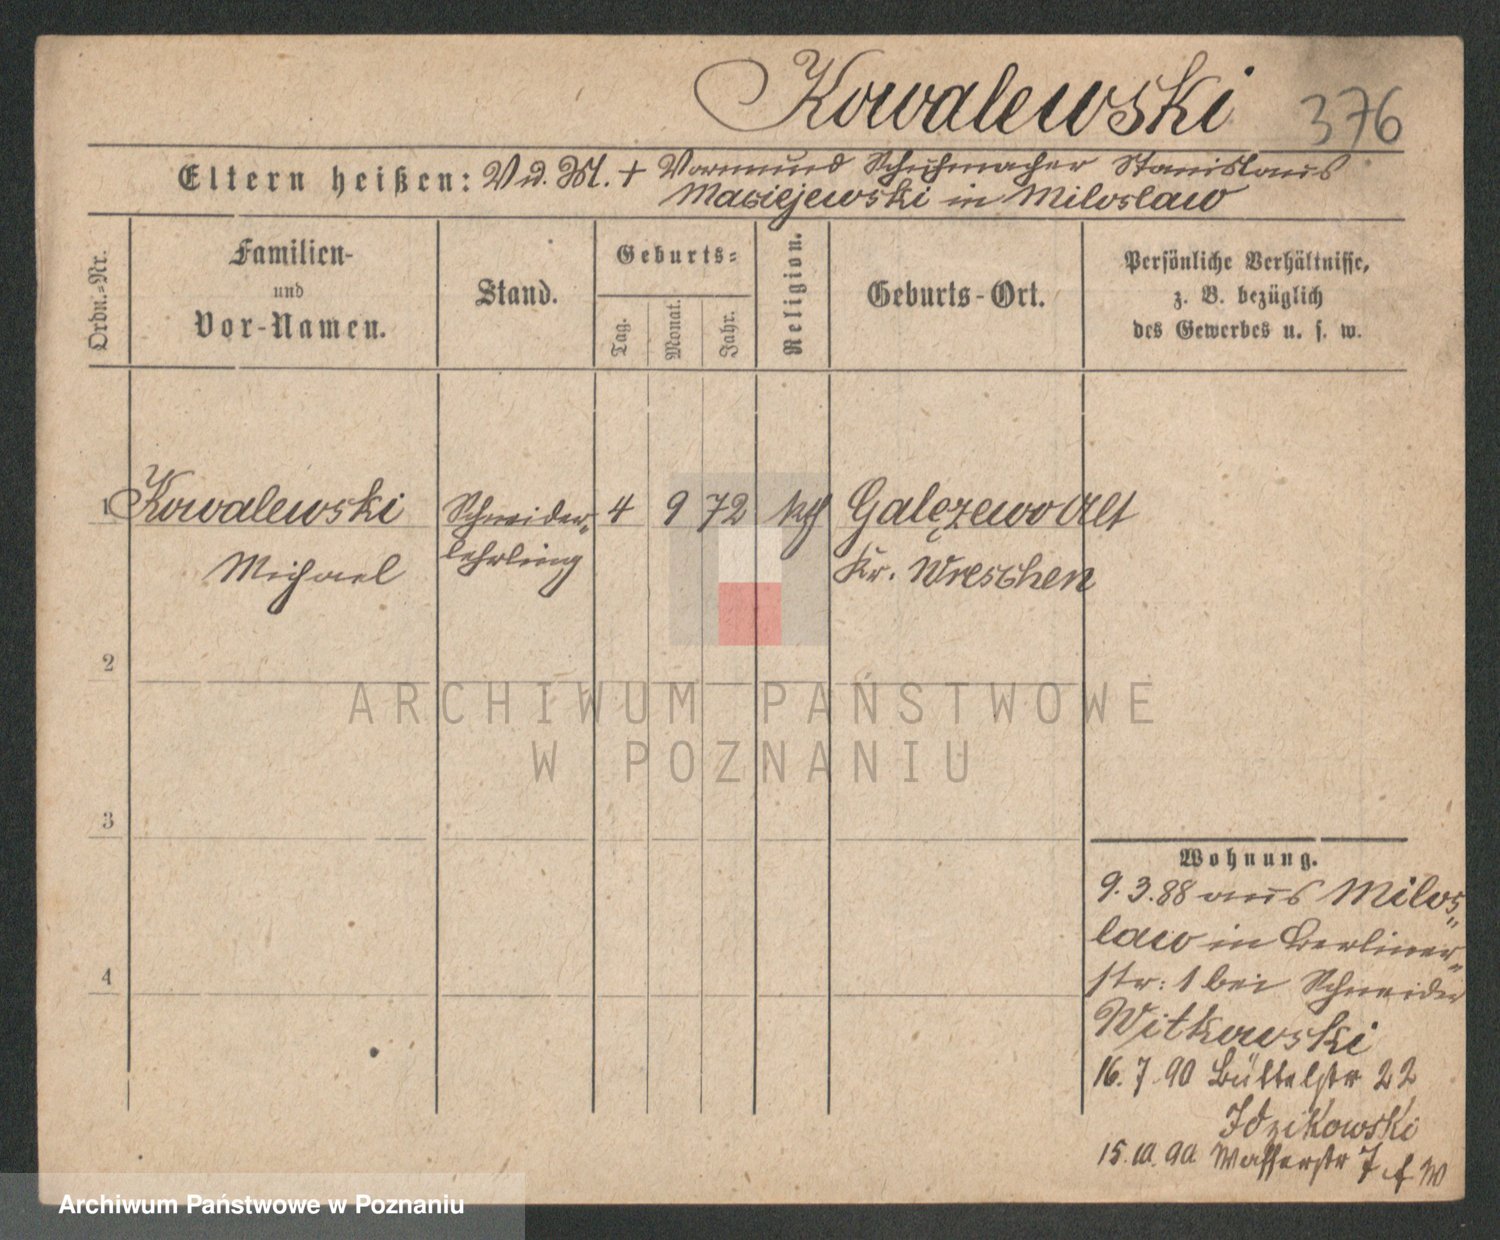 Kowalewski 376
Eltern heißen: V u. M. + Vormund Schuhmacher Stanislaus
Maciejewski in Miloslaw
Ordn.-Nr.
Familien-
und
Vor-Namen.
Stand.
Geburts-
Tag.
Monat.
Jahr.
Religion.
Geburts-Ort.
Persönliche Verhältnisse,
z. B. bezüglich
des Gewerbes u. s. w.
1 Kowalewski Schneider- 4 9 72 kth Galęzewo Alt
Michael lehrling Kr. Wreschen
2
ARCHIWUM PAŃSTWOWE
W POZNANIU
3
Wohnung.
9.3.88 aus Milos-
law in Berliner-
str: 1 bei Schneider
4
Witkowski
16.7.90 Büttelstr 22
Idzikowski
15.10.90 Wasserstr 7
Archiwum Państwowe w Poznaniu